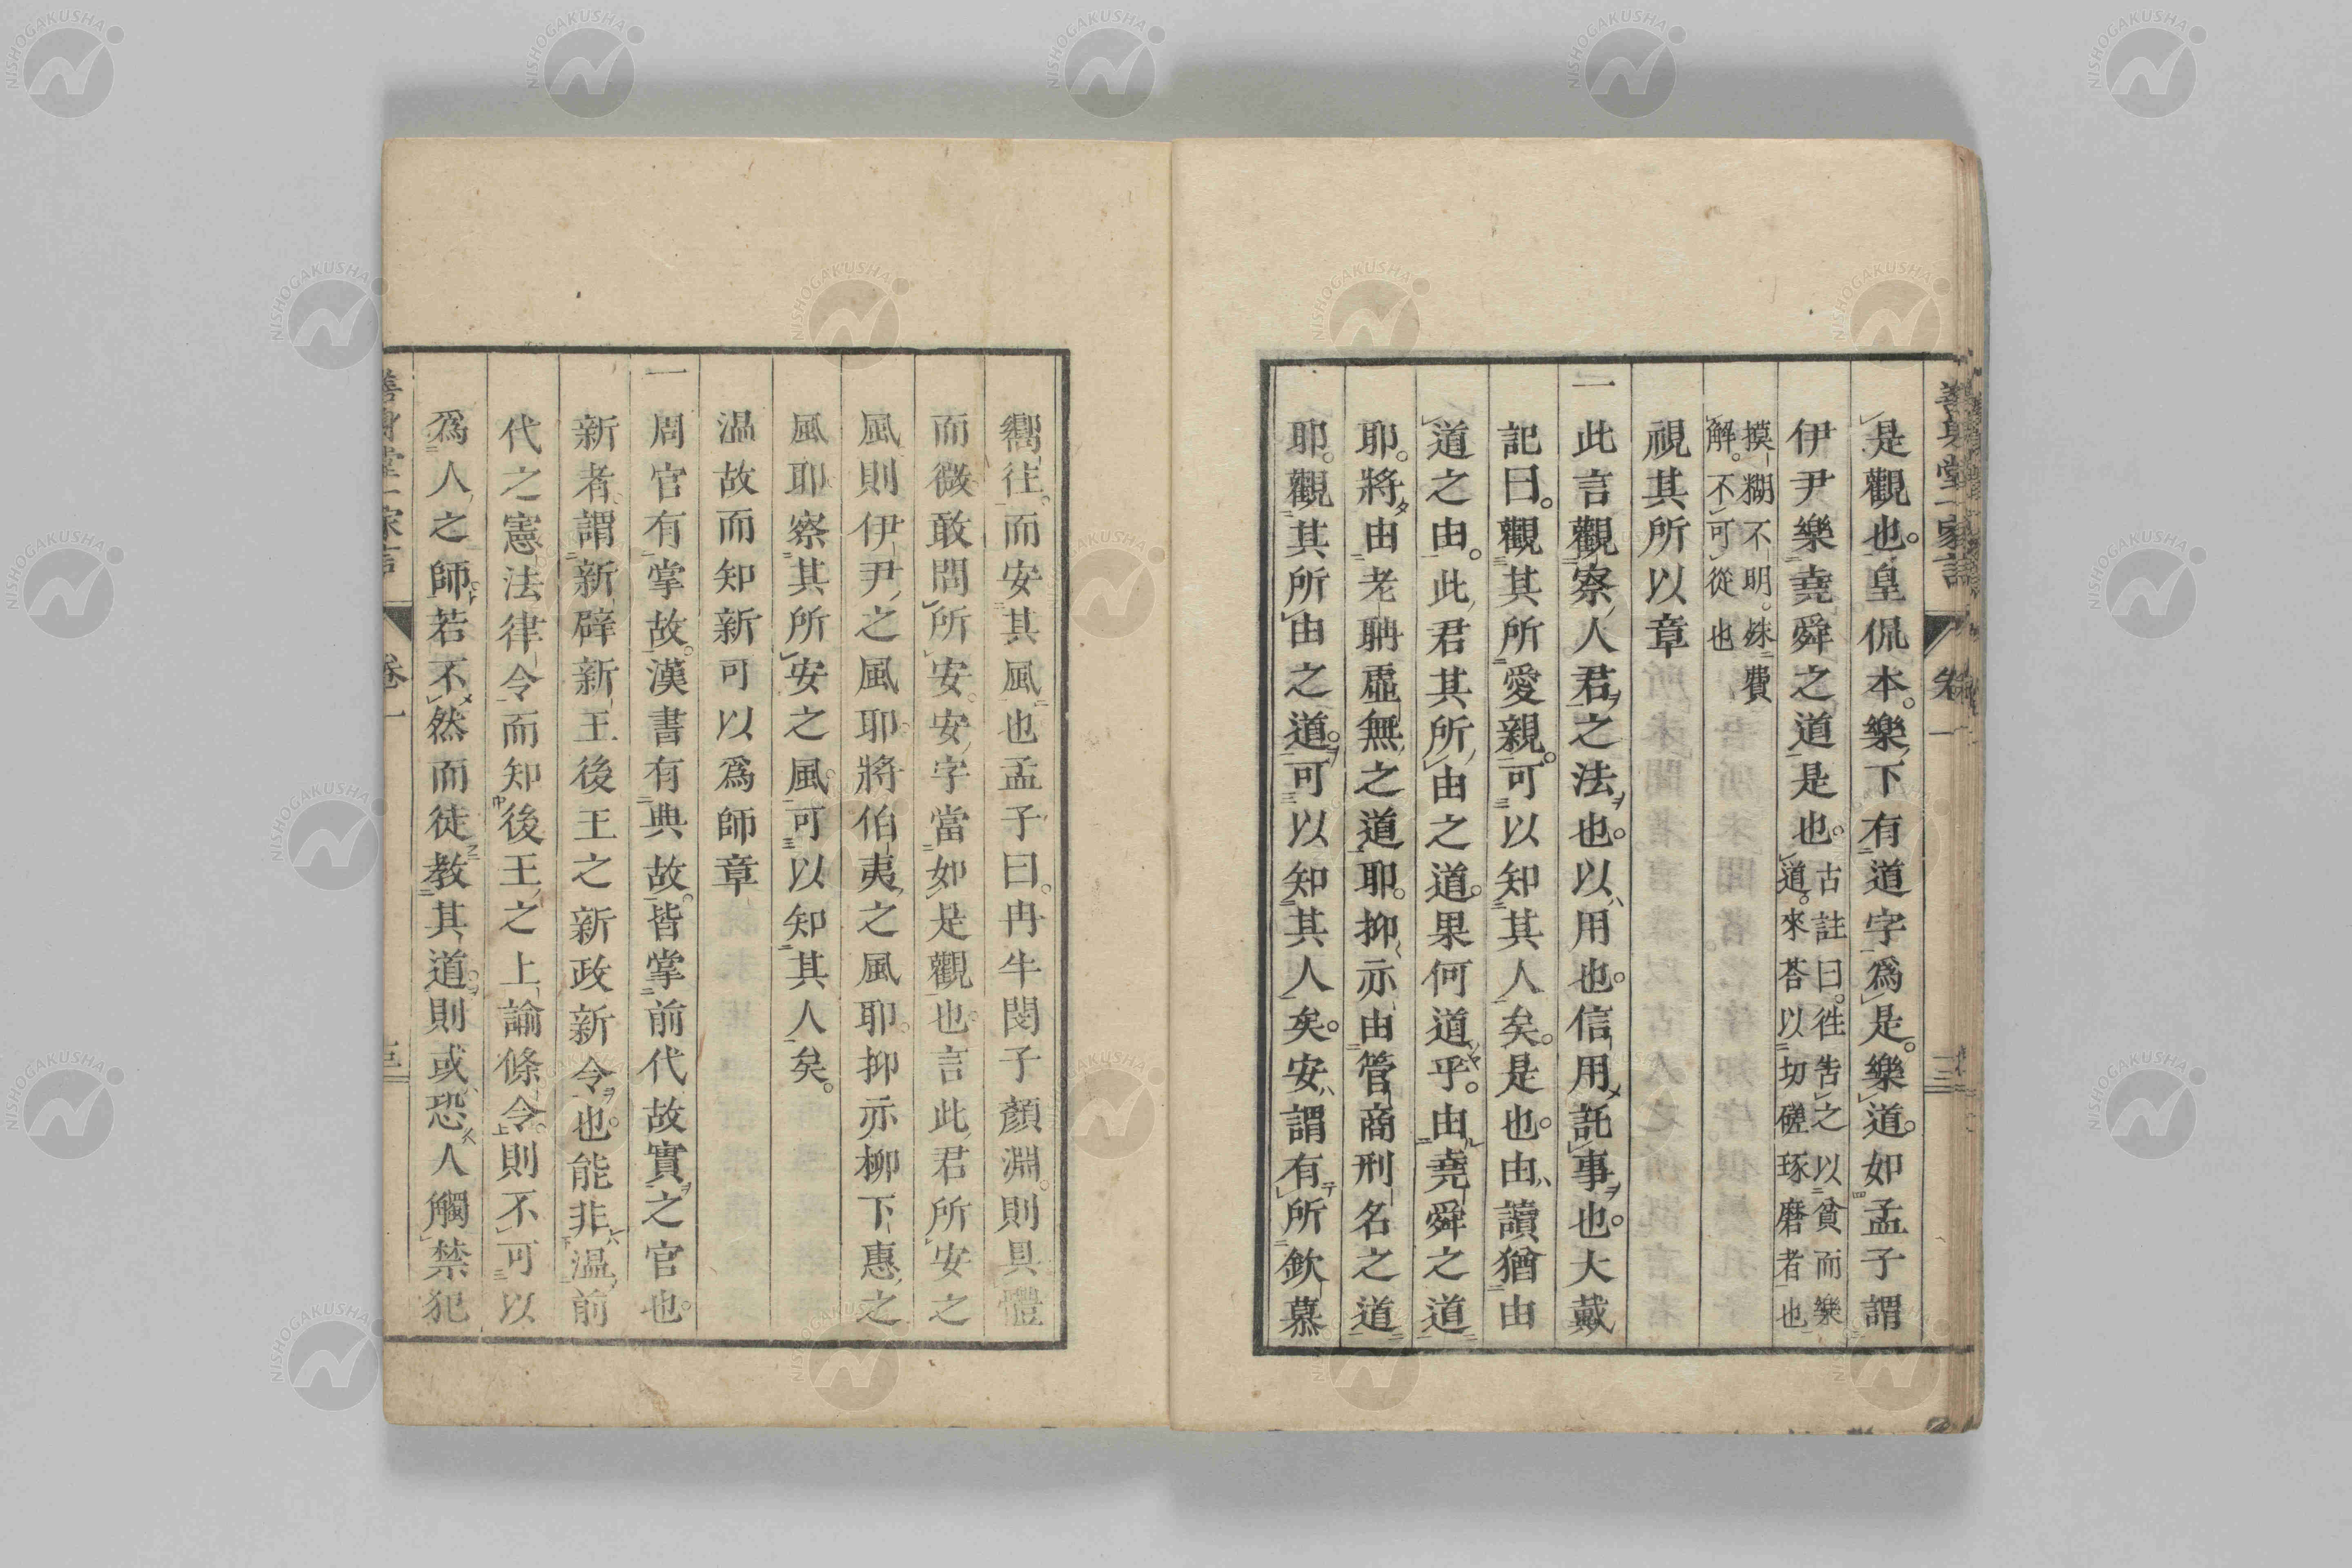 是觀也。皇侃本。樂下有道字爲是。樂道。如孟子謂
伊尹樂堯舜之道是也。古註曰。往告之以貧而樂
道。來荅以切磋琢磨者也
摸糊不明。殊費
解。不可從也
視其所以章
一此言觀察人君之法也。以用也。信用託事也。大戴
記曰。觀其所愛親。可以知其人矣。是也。由讀猶由
道之由。此君其所由之道。果何道乎。由堯舜之道
耶。將由老聃虛無之道耶。抑亦由管商刑名之道
耶。觀其所由之道。可以知其人矣。安謂有所欽慕
嚮往。而安其風也孟子曰。冉牛閔子顏淵。則具體
而微。敢問所安。安字當如是觀也。言此君所安之
風則伊尹之風耶。將伯夷之風耶。抑亦柳下惠之
風耶。察其所安之風。可以知其人矣。
溫故而知新可以爲師章
一周官有掌故。漢書有典故。皆掌前代故實之官也。
新者。謂新辟新王後王之新政新令也。能非溫前
代之憲法律令而知後王之上諭條令。則不可以
爲人之師。若不然而徒教其道。則或恐人觸禁犯
善身堂一家言
卷一
NISHOGAKUSHA